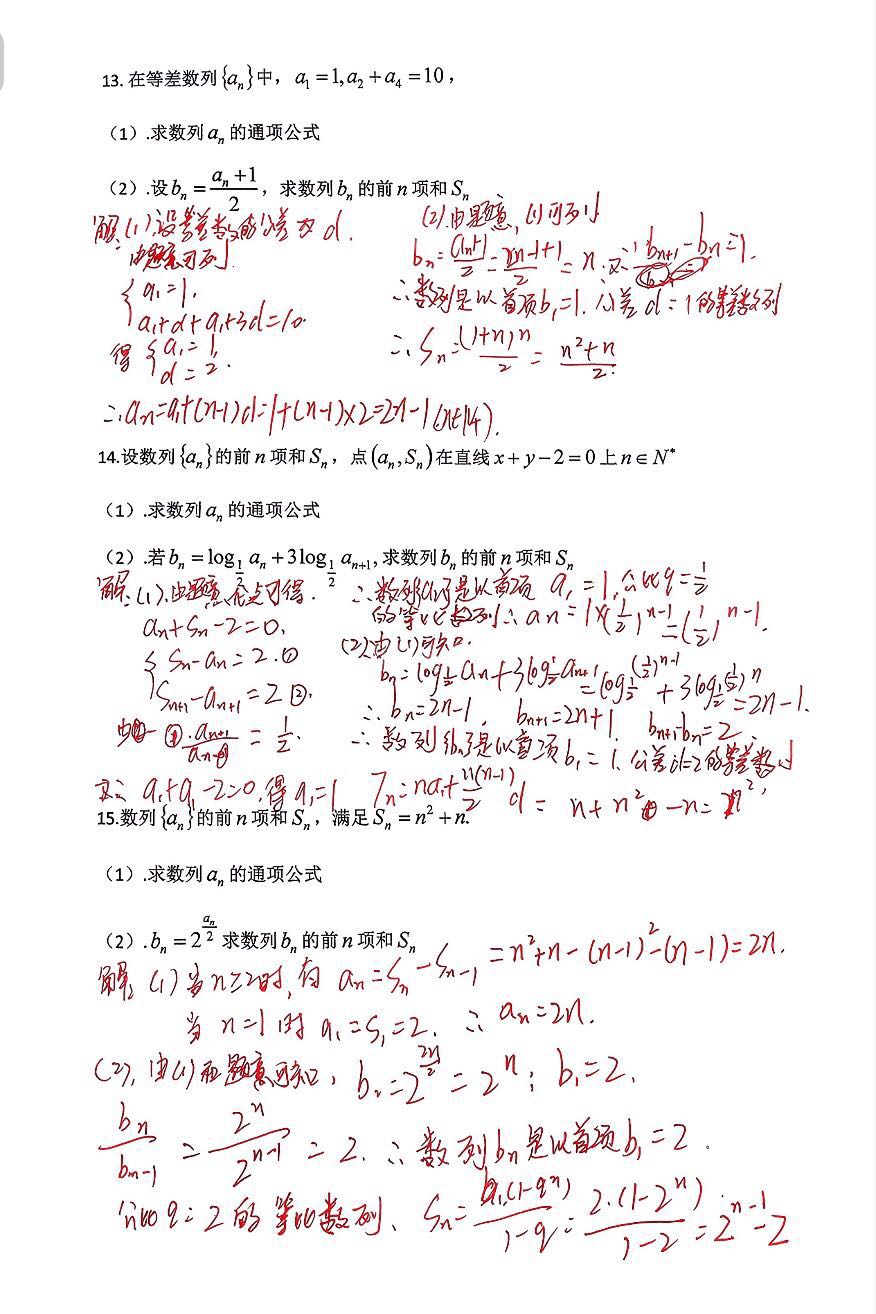 13. 在等差数列{aₙ}中，a₁=1,a₂+a₄=10，
（1）.求数列aₙ的通项公式
（2）.设bₙ=(aₙ+1)/2，求数列bₙ的前n项和Sₙ
解:(1)设等差数列公差为d.
由题意可列
{a₁=1,
a₁+d+a₁+3d=10.
得{a₁=1,
d=2.
∴aₙ=a₁+(n-1)d=1+(n-1)×2=2n-1
(2)由题意,(1)可列
bₙ=(aₙ+1)/2=(2n-1+1)/2=n.又∵bₙ₊₁-bₙ=1.
∴数列是以首项b₁=1.公差d=1的等差数列
∴Sₙ=(1+n)n/2=(n²+n)/2.
14.设数列{aₙ}的前n项和Sₙ，点(aₙ,Sₙ)在直线x+y−2=0上n∈N*
（1）.求数列aₙ的通项公式
（2）.若bₙ=log_{1/2} aₙ+3log_{1/2} aₙ₊₁,求数列bₙ的前n项和Sₙ
解:(1).由题意,点可得.
aₙ+Sₙ-2=0,
{Sₙ-aₙ=2.①
Sₙ₊₁-aₙ₊₁=2②.
aₙ₊₁/aₙ=1/2.
又∵a₁+a₁-2=0,得a₁=1
∴数列{aₙ}是以首项a₁=1,公比q=1/2
的等比数列∴aₙ=1×(1/2)ⁿ⁻¹=(1/2)ⁿ⁻¹.
(2)由(1)可知.
bₙ=log_{1/2} aₙ+3log_{1/2} aₙ₊₁=log_{1/2} (1/2)ⁿ⁻¹+3log_{1/2} (1/2)ⁿ=2n-1.
∴bₙ=2n-1, bₙ₊₁=2n+1, bₙ₊₁-bₙ=2
∴数列{bₙ}是以首项b₁=1,公差d=2的等差数列
Tₙ=na₁+n(n-1)/2 d=n+n²-n=n².
15.数列{aₙ}的前n项和Sₙ，满足Sₙ=n²+n.
（1）.求数列aₙ的通项公式
（2）.bₙ=2^(aₙ/2)求数列bₙ的前n项和Sₙ
解:(1)当n≥2时,有aₙ=Sₙ-Sₙ₋₁=n²+n-(n-1)²-(n-1)=2n.
当n=1时a₁=S₁=2.∴aₙ=2n.
(2),由(1)和题意可知,bₙ=2^(2n/2)=2ⁿ;b₁=2.
bₙ/bₙ₋₁=2ⁿ/2ⁿ⁻¹=2.∴数列bₙ是以首项b₁=2.
公比q=2的等比数列、Sₙ=b₁(1-qⁿ)/(1-q)=2.(1-2ⁿ)/(1-2)=2ⁿ⁻¹-2